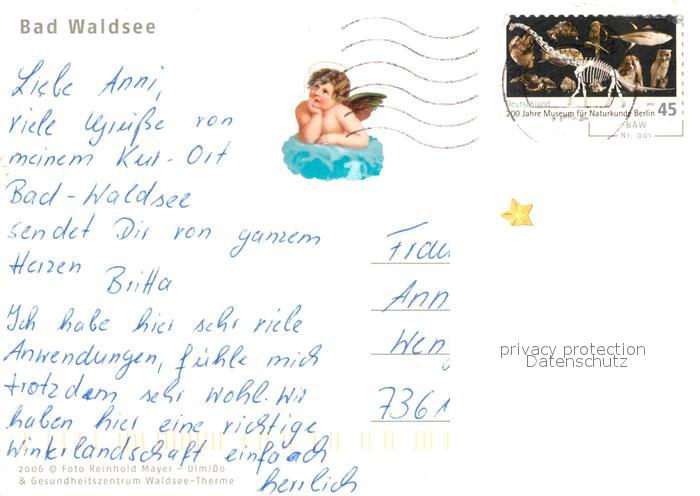 Bad Waldsee
Liebe Anni,
viele Grüße von
meinem Kur-Ort
Bad-Waldsee
sendet Dir von ganzem
Herzen
Britta
Ich habe hier sehr viele
Anwendungen, fühle mich
trotzdem sehr wohl. Wir
haben hier eine richtige
Winterlandschaft einfach
herrlich
2006 © Foto Reinhold Mayer - Ulm/Do
& Gesundheitszentrum Waldsee-Therme
Deutschland 2010
200 Jahre Museum für Naturkunde Berlin 45
BAW
Nr. 001
Frau
Ann
Wen
7361
privacy protection
Datenschutz